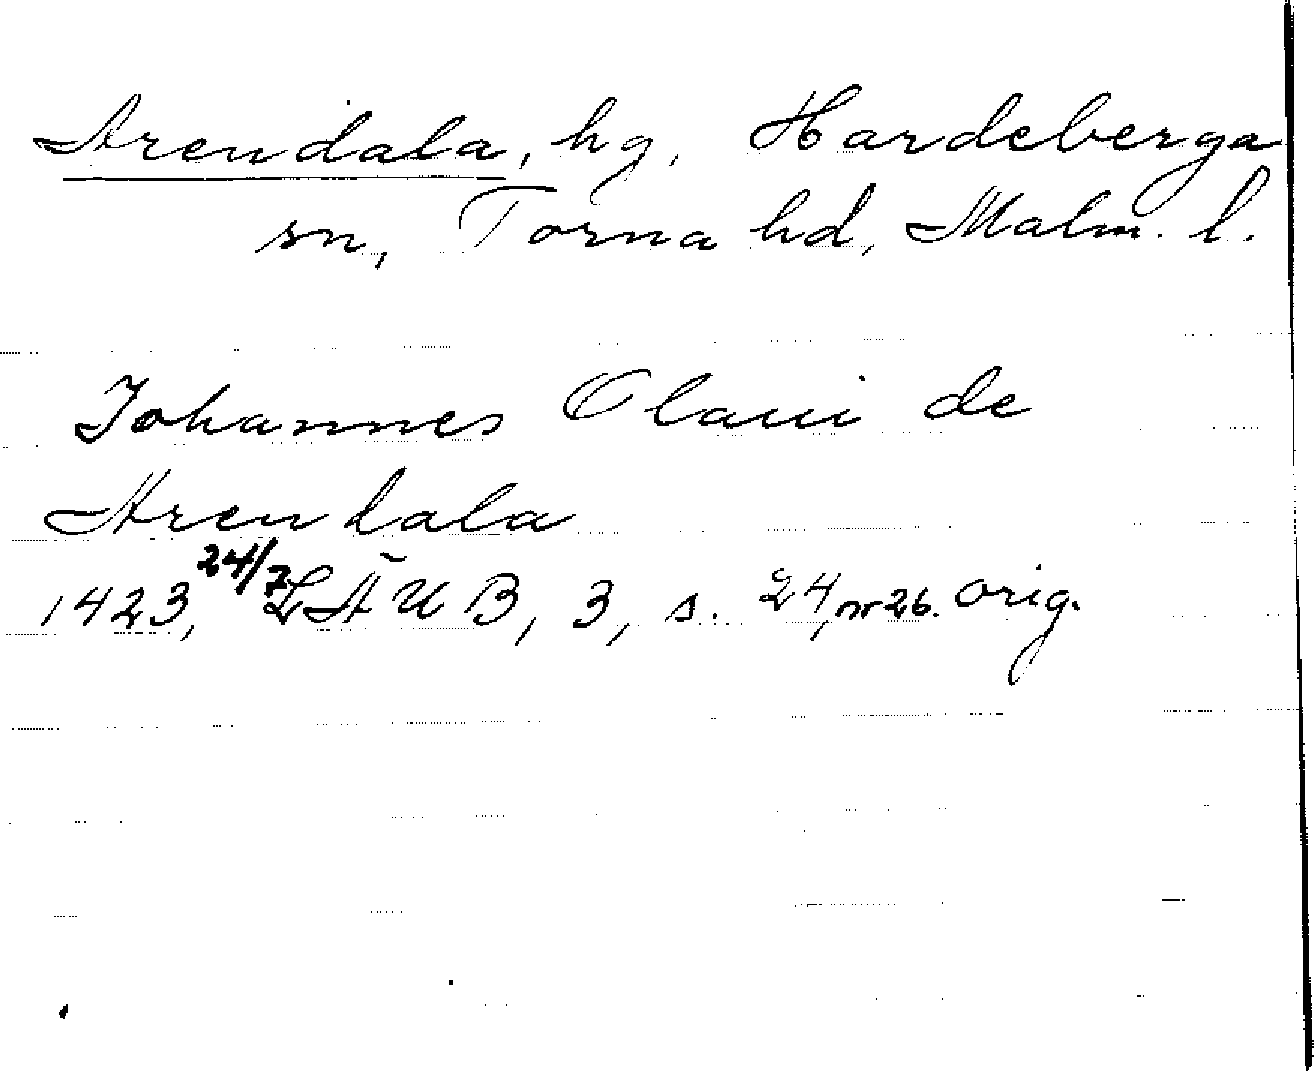 Arendala, hg, Hardeberga
sn, Torna hd, Malm. l.
Johannes Olaui de
Arendala
1423, 24/7 LÄUB, 3, s. 24, nr 26. orig.